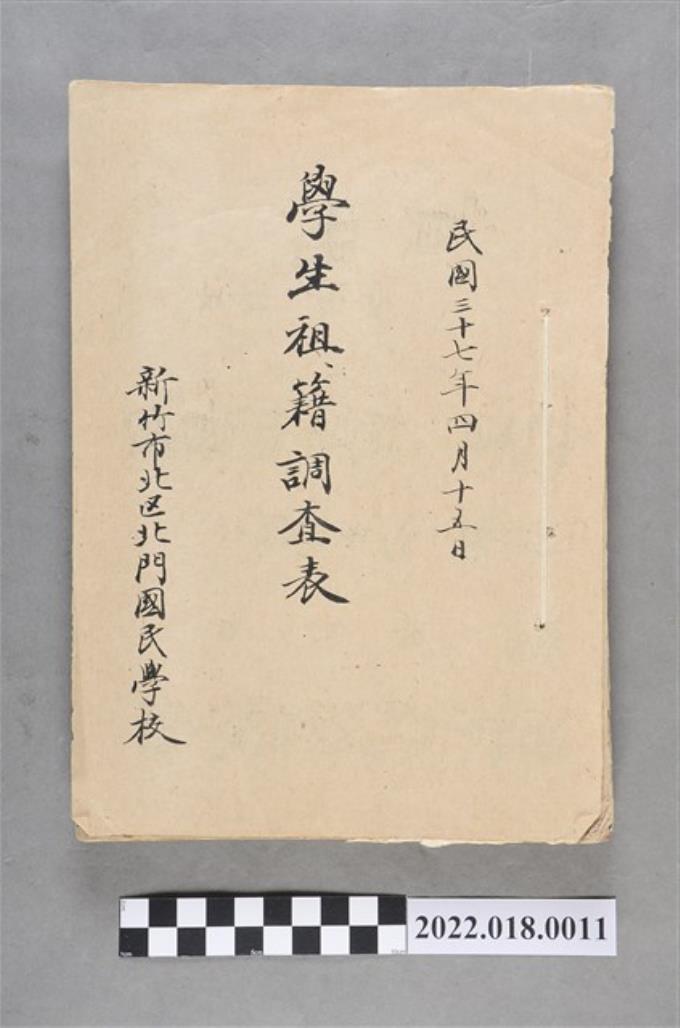 民國三十七年四月十五日
學生祖籍調查表
新竹市北区北門國民學校
2022.018.0011